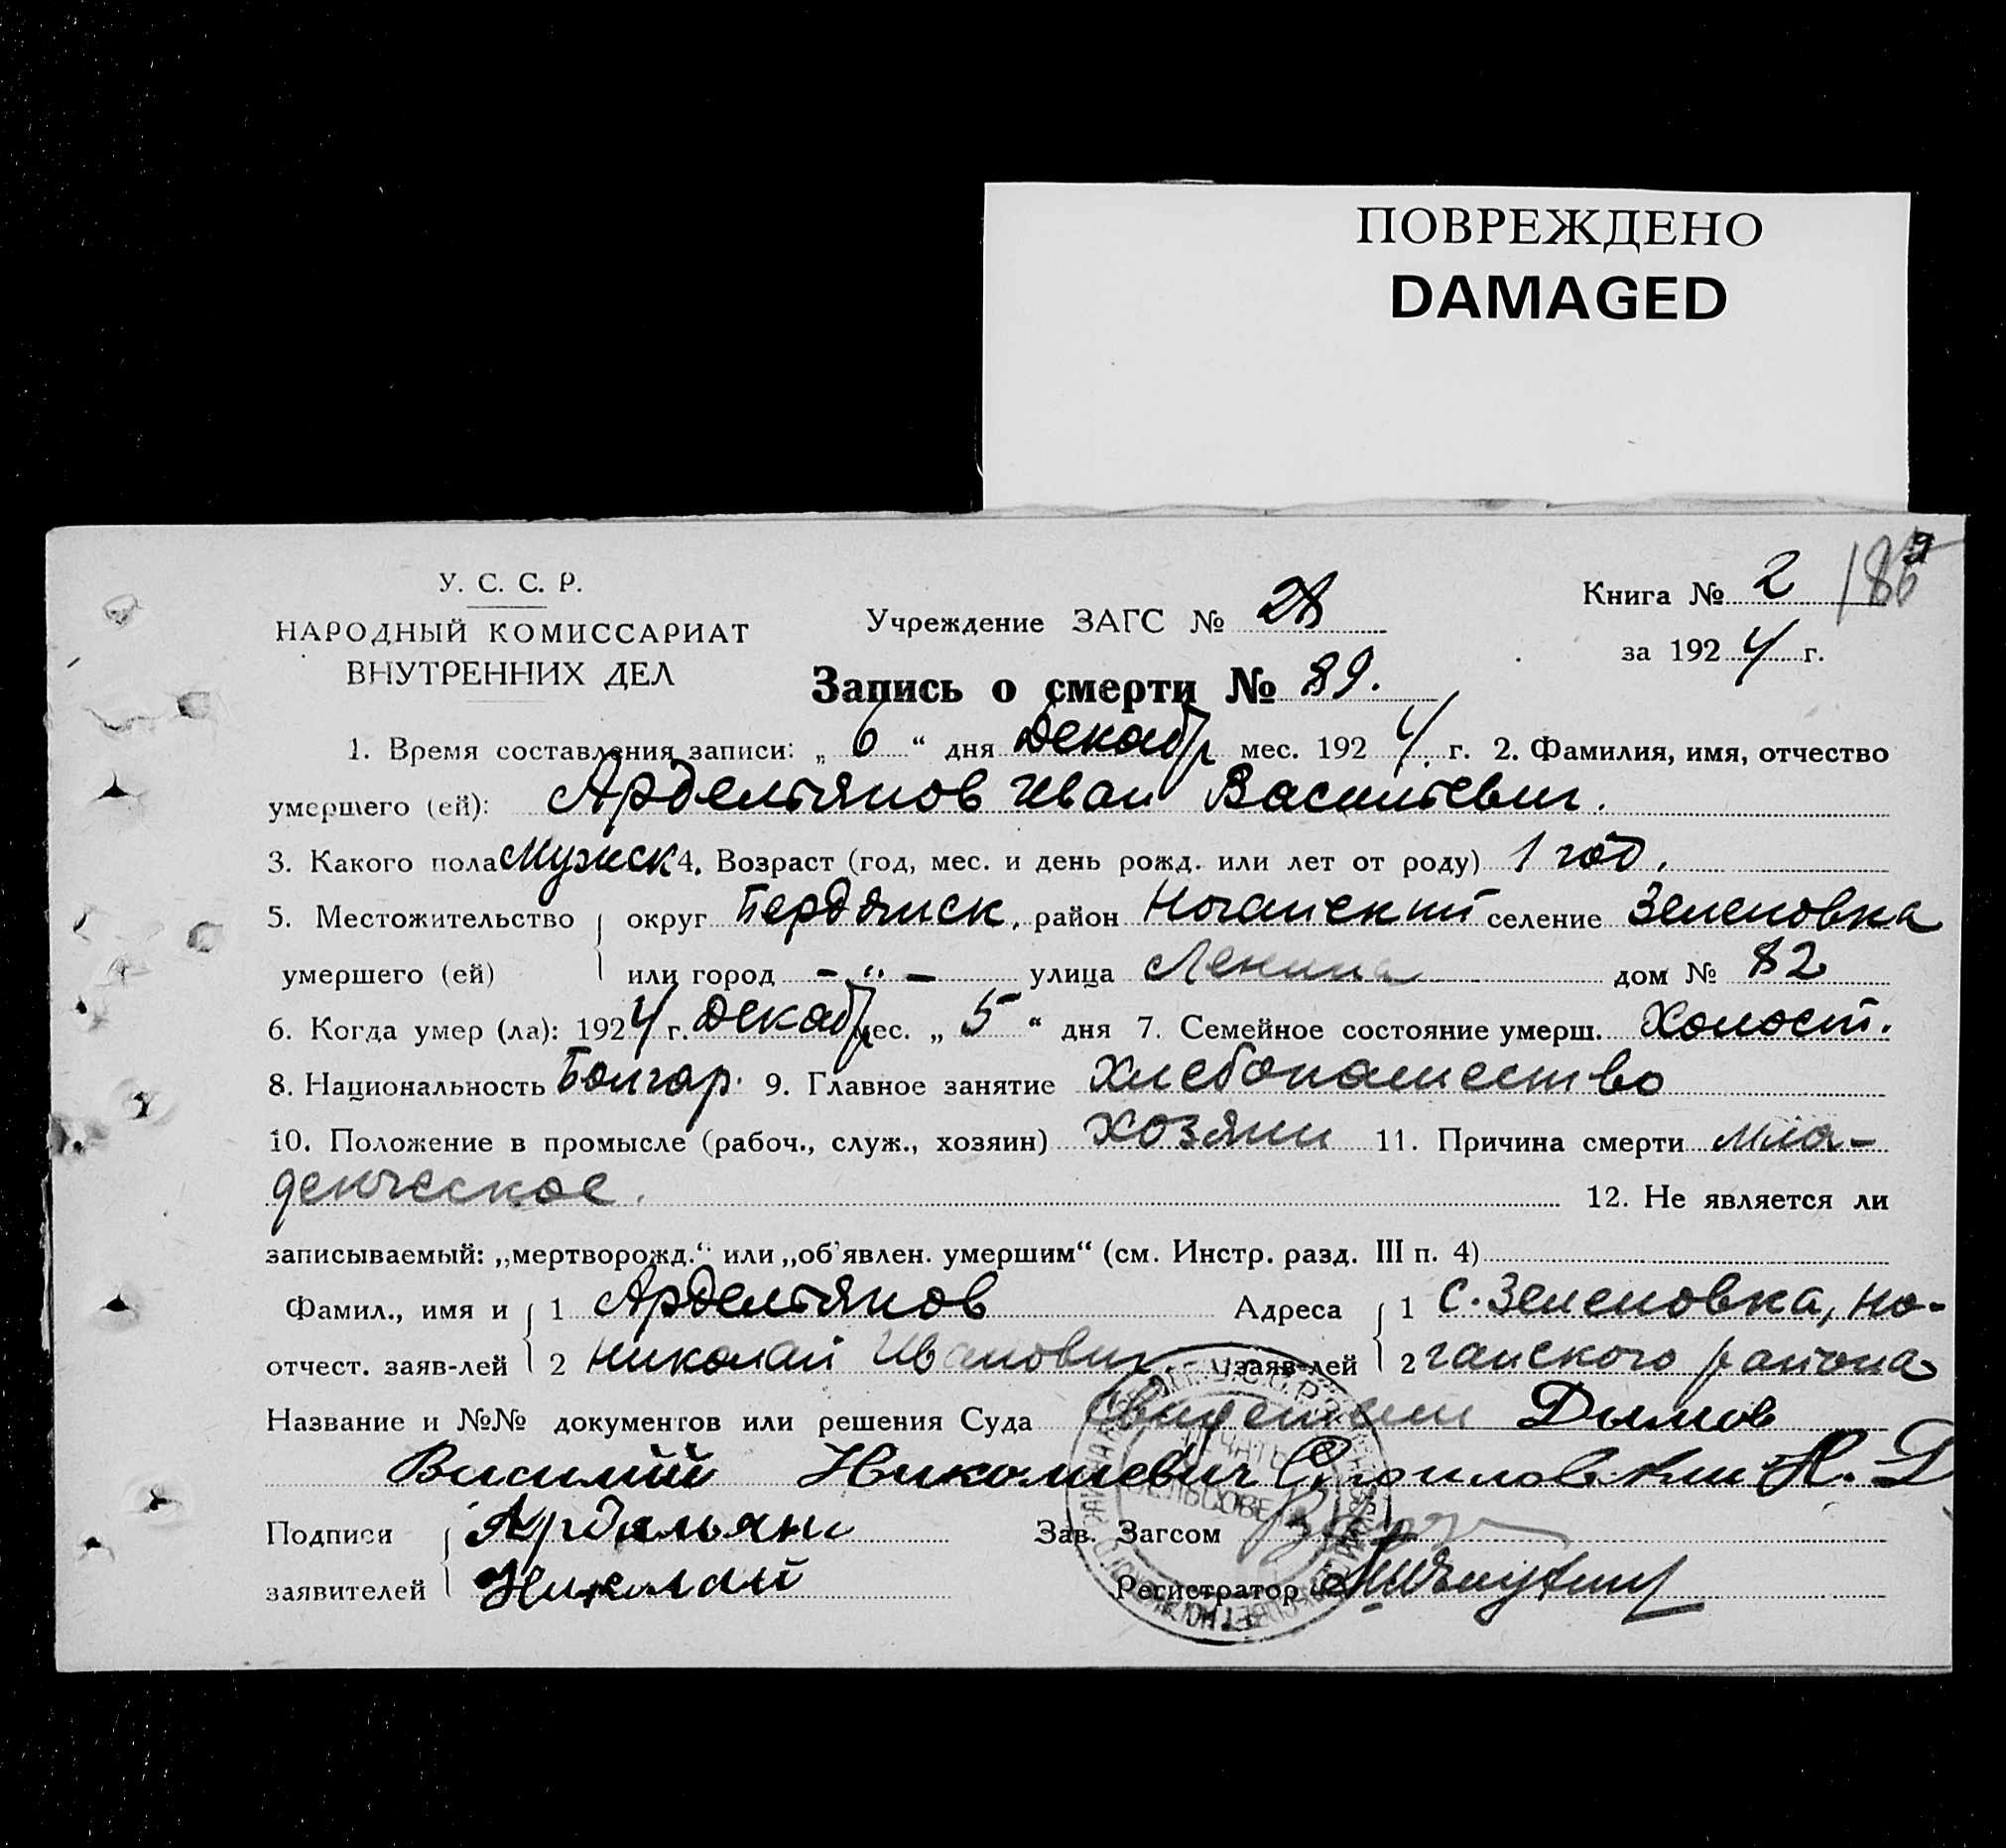 ПОВРЕЖДЕНО
DAMAGED
У. С. С. Р.
НАРОДНЫЙ КОМИССАРИАТ
ВНУТРЕННИХ ДЕЛ
Учреждение ЗАГС № 28
Книга № 2
за 1924 г.
Запись о смерти № 89.
1. Время составления записи: „ 6 “ дня Декабр мес. 1924 г. 2. Фамилия, имя, отчество
умершего (ей): Ардельянов Иван Васильевич.
3. Какого пола Мужск 4. Возраст (год, мес. и день рожд. или лет от роду) 1 год.
5. Местожительство округ Бердянск, район Ногайский селение Зеленовка
умершего (ей) или город - „ - улица Ленина дом № 82
6. Когда умер (ла): 1924 г. Декабр мес. „ 5 “ дня 7. Семейное состояние умерш. Холост.
8. Национальность Болгар. 9. Главное занятие Хлебопашество
10. Положение в промысле (рабоч., служ., хозяин) Хозяин 11. Причина смерти Мла-
денческое. 12. Не является ли
записываемый: „мертворожд.“ или „об'явлен. умершим“ (см. Инстр. разд. III п. 4)
Фамил., имя и 1 Ардельянов Адреса 1 С. Зеленовка, но-
отчест. заяв-лей 2 Николай Иванович заяв-лей 2 гайского района
Название и №№ документов или решения Суда Свидетели Дымов
Василий Николаевич Н. Д
Подписи Ардельян Зав. Загсом
заявителей Николай Регистратор